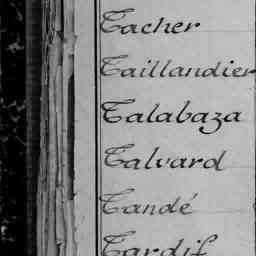 Tacher
Taillandier
Talabaza
Talvard
Tandé
Tardif